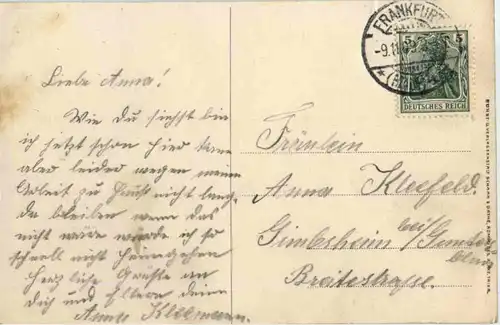 Liebe Anna!
Wie du siehst bin
ich jetzt schon hier kann
aber leider wegen meine
Arbeit zu Haus nicht lang
da bleiben wenn das
nicht wäre würde ich so
schnell nicht Heimgehen
Herzliche Grüsse an
dich und Eltern deine
Kleemann.
FRANKFURT
-9.11.
5 5
DEUTSCHES REICH
Fräulein
Anna Kleefeld.
Gimbsheim bei/
Breitestrasse.